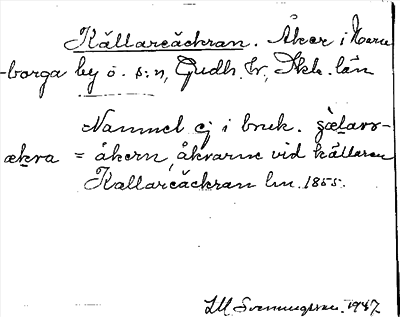 Källareäckran. Åker i Harra-
-borga by ö. s:n, Gudh. hr, Skb. län
Namnet ej i bruk. ṣælarr-
ækra = åkern, åkrarne vid källaren
Kallareäckran lm. 1855.
LM Svenungsson. 1947